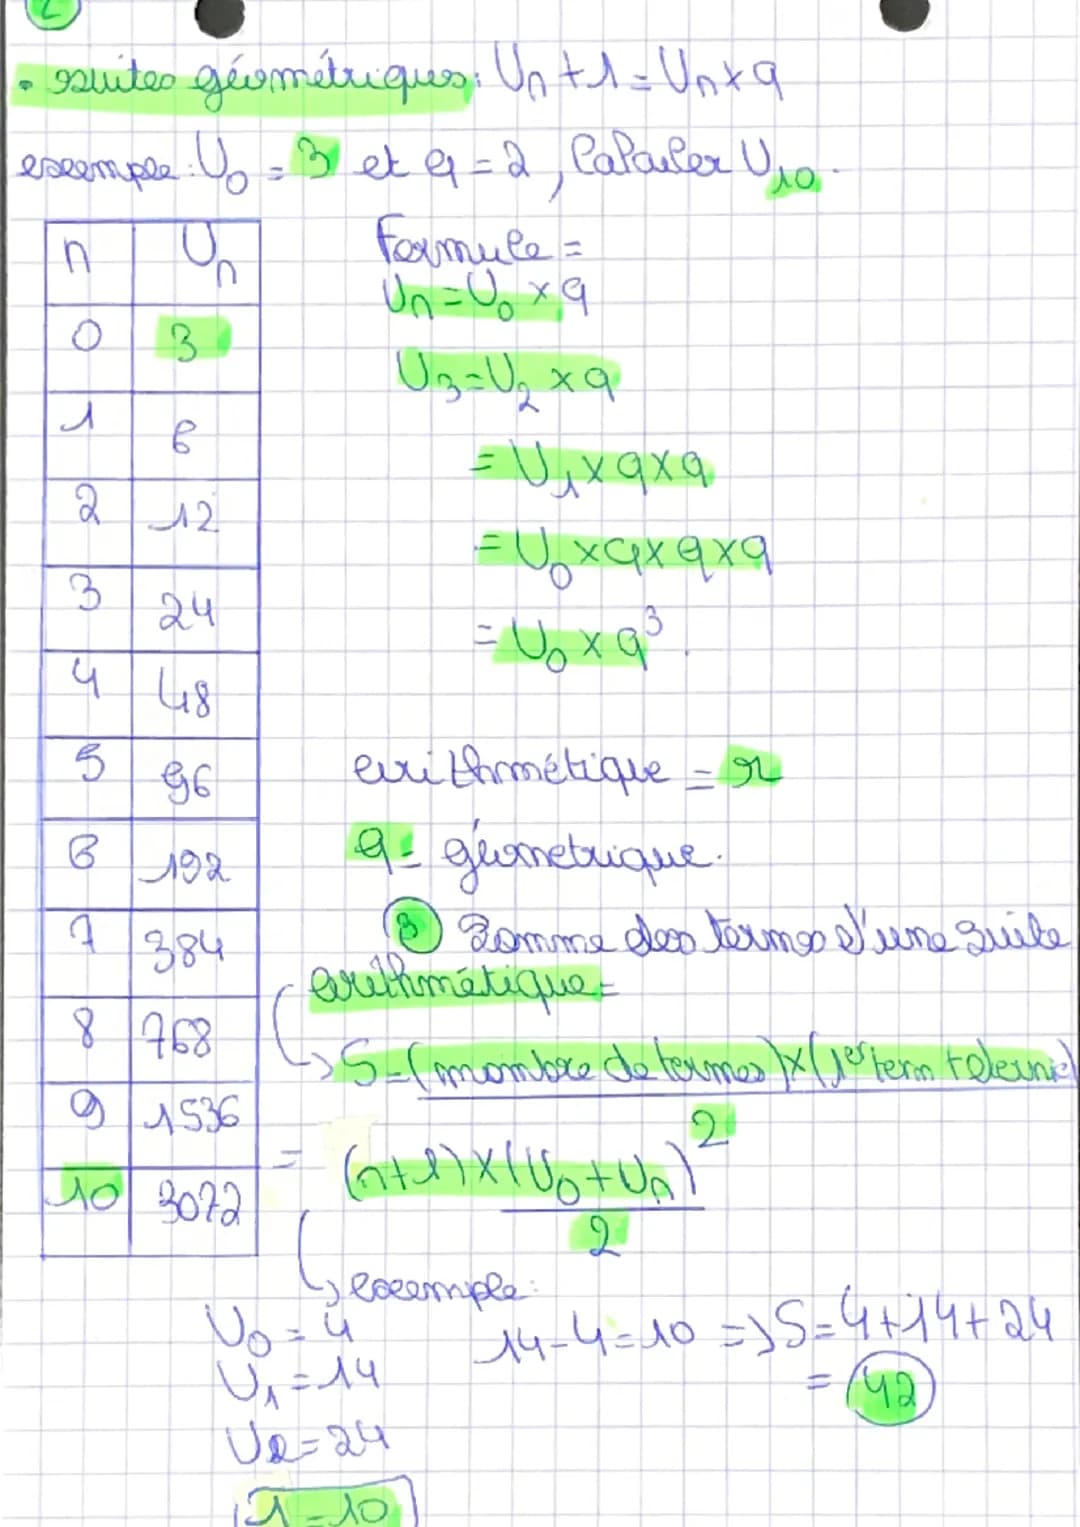 2
• suites géométriques: Un+1 = Un×q
exemple: U0 = 3 et q = 2, Calculer U10.
n Un
0 3
1 6
2 12
3 24
4 48
5 96
6 192
7 384
8 768
9 1536
10 3072
Formule =
Un = U0 × q
U3 = U2 × q
= U1 × q × q
= U0 × q × q × q
= U0 × q³.
arithmétique = r
q = géometrique.
3 Somme des termes d'une suite
arithmétique =
→ S = (nombre de termes) × (1er term + dernie)
2
= (n+1) × (U0 + Un)
2
exemple:
U0 = 4
14 - 4 = 10 => S = 4+14+24
U1 = 14
= 42
U2 = 24
1 = 10